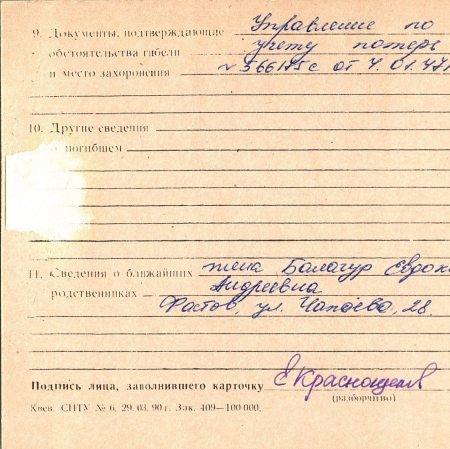 9. Документы, подтверждающие Управление по
обстоятельства гибели учету потерь
и место захоронения №566175с от 4.01.47г
10. Другие сведения
о погибшем
11. Сведения о ближайших жена Балагур Евдок
родственниках Андреевна
Фастов, ул. Чапаева, 28
Подпись лица, заполнившего карточку
(разборчиво)
Киев. СПТУ № 6. 29.03.90 г. Зак. 409—100 000.